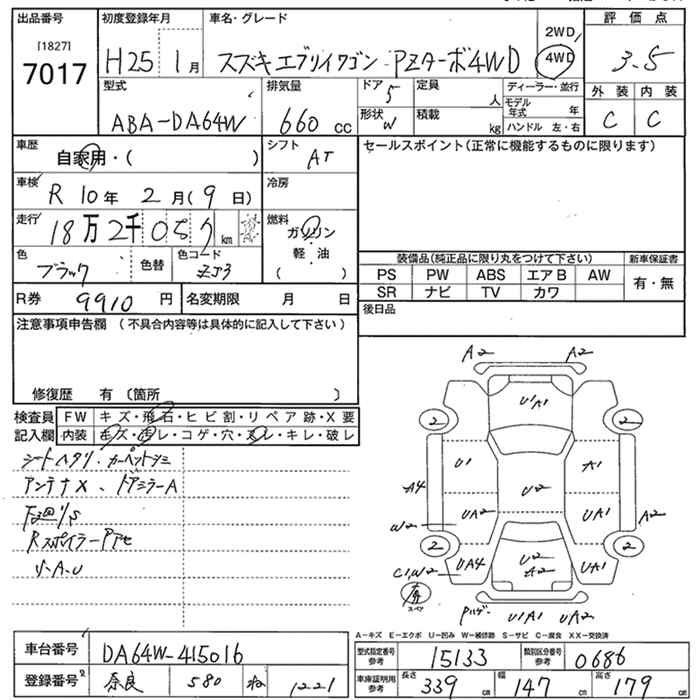 出品番号 初度登録年月 車名・グレード 評価点
[1827]
7017 H25 1月 スズキ エブリイワゴン PZターボ4WD 2WD 4WD 3.5
型式 排気量 ドア 定員 ディーラー・並行 外装 内装
ABA-DA64W 660 cc 5 人 モデル年式 年 C C
形状 W 積載 kg ハンドル 左・右
車歴 自家用・( ) シフト AT セールスポイント(正常に機能するものに限ります)
車検 R 10年 2月(9日) 冷房
走行 18万2千057 km 燃料 ガソリン
軽油
( )
色 ブラック 色替 色コード ZJ3
装備品(純正品に限り丸をつけて下さい) 新車保証書
PS PW ABS エアB AW 有・無
SR ナビ TV カワ
R券 9910円 名変期限 月 日 後日品
注意事項申告欄 (不具合内容等は具体的に記入して下さい)
修復歴 有 (箇所 )
検査員 FW キズ・飛石・ヒビ割・リペア跡・X要
記入欄 内装 キズ・汚レ・コゲ・穴・スレ・キレ・破レ
シートヘタリ・カーペットシミ
アンテナX、ドアミラーA
RスポイラーPハセ
リ・A・U
A2 A2
U1A1
2 2
U1 A1
A4 U2
UA2 UA1 A2
W2
2 2
C1,W2 UA4 U2 A2 UA1
スペア
U1A1 UA2
A-キズ E-エクボ U-凹み W-補修跡 S-サビ C-腐食 XX-交換済
車台番号 DA64W-415016 型式指定番号 参考 15133 類別区分番号 参考 0686
登録番号 奈良 580 ね 1221 車庫証明用 参考 長さ 339 cm 幅 147 cm 高さ 179 cm